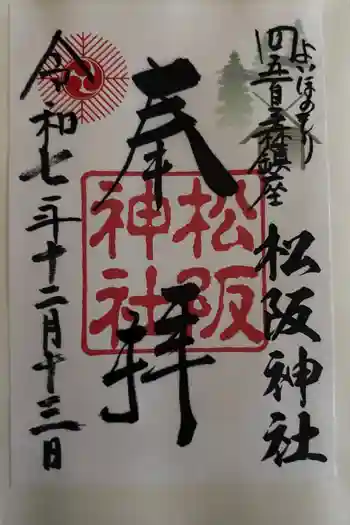 よいほのもり
四五百森鎮座
松阪神社
奉拝
松阪神社
令和七年十二月十三日